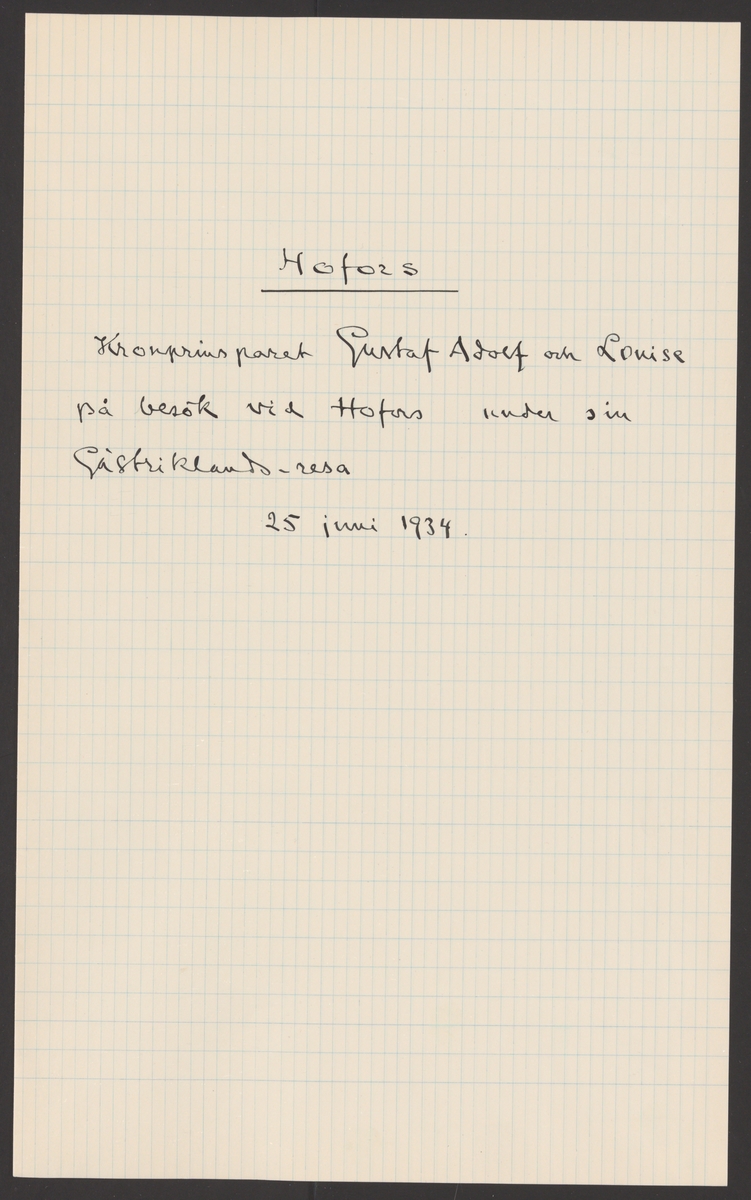 Hofors
Kronprinsparet Gustaf Adolf och Louise
på besök vid Hofors under sin
Gästriklands-resa
25 juni 1934.